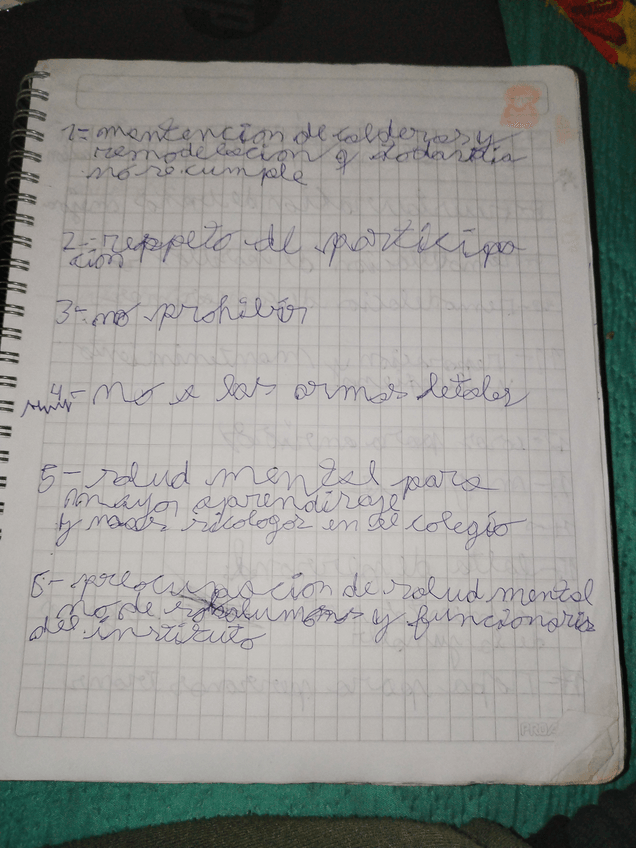 1- mantencion de calderas y
remodelacion q todavia
no se cumple
2- reppeto de participa
cion
3- no prohibir
4- no a las armas letales
5- salud mental para
mayor aprendisaje
y mas sicologos en el colegio
6- preocupacion de salud mental
de alumnos y funcionarios
del instituto
PROA